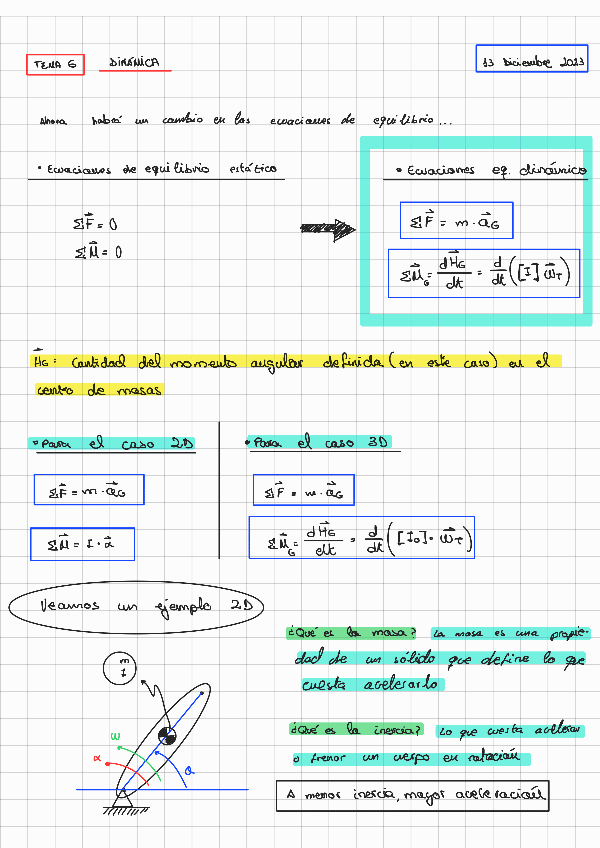 TEMA 6 DINÁMICA
13 Diciembre 2023
Ahora habrá un cambio en las ecuaciones de equilibrio...
• Ecuaciones de equilibrio estático
Σ F⃗ = 0
Σ M⃗ = 0
• Ecuaciones eq. dinámico
Σ F⃗ = m · a⃗_G
Σ M⃗_G = dH⃗_G/dt = d/dt ([I] ω⃗_T)
H⃗_G: Cantidad del momento angular definida (en este caso) en el
centro de masas
• Para el caso 2D
Σ F⃗ = m · a⃗_G
Σ M⃗ = I · α⃗
• Para el caso 3D
Σ F⃗ = m · a⃗_G
Σ M⃗_G = dH⃗_G/dt = d/dt ([I_0] · ω⃗_T)
Veamos un ejemplo 2D
m
I
ω
α
θ
¿Qué es la masa? La masa es una propie-
dad de un sólido que define lo que
cuesta acelerarlo
¿Qué es la inercia? Lo que cuesta acelerar
o frenar un cuerpo en rotación
A menor inercia, mayor aceleración